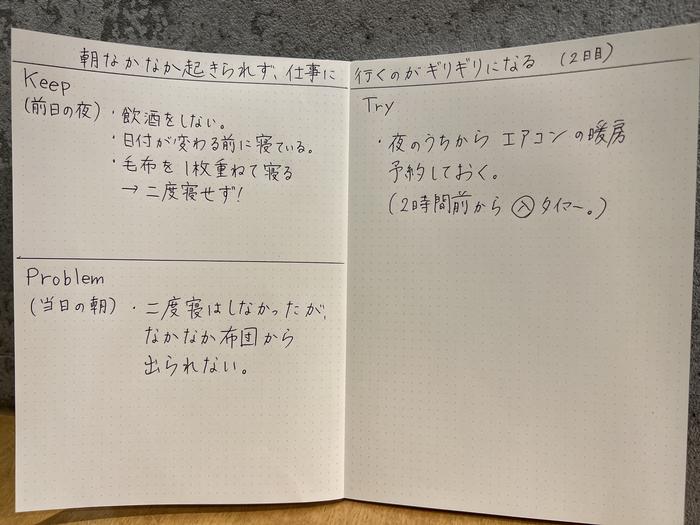 朝なかなか起きられず、仕事に行くのがギリギリになる (2日目)
Keep
(前日の夜) ・飲酒をしない。
・日付が変わる前に寝ている。
・毛布を1枚重ねて寝る
→ 二度寝せず!
Problem
(当日の朝) ・二度寝はしなかったが、
なかなか布団から
出られない。
Try
・夜のうちから エアコンの暖房
予約しておく。
(2時間前から 入 タイマー。)